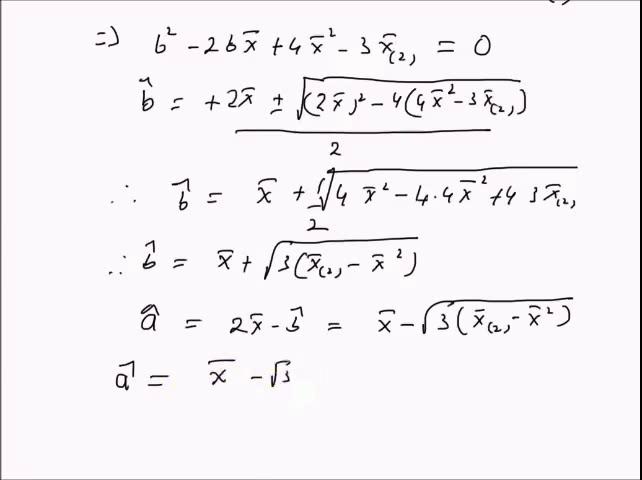 ⇒ b² - 2bx̄ + 4x̄² - 3x̄₍₂₎ = 0
b̂ = +2x̄ ± √((2x̄)² - 4(4x̄² - 3x̄₍₂₎)) / 2
∴ b̂ = x̄ + ½√(4x̄² - 4·4x̄² + 4 3x̄₍₂₎)
∴ b̂ = x̄ + √(3(x̄₍₂₎ - x̄²))
â = 2x̄ - b̂ = x̄ - √(3(x̄₍₂₎ - x̄²))
â = x̄ - √3